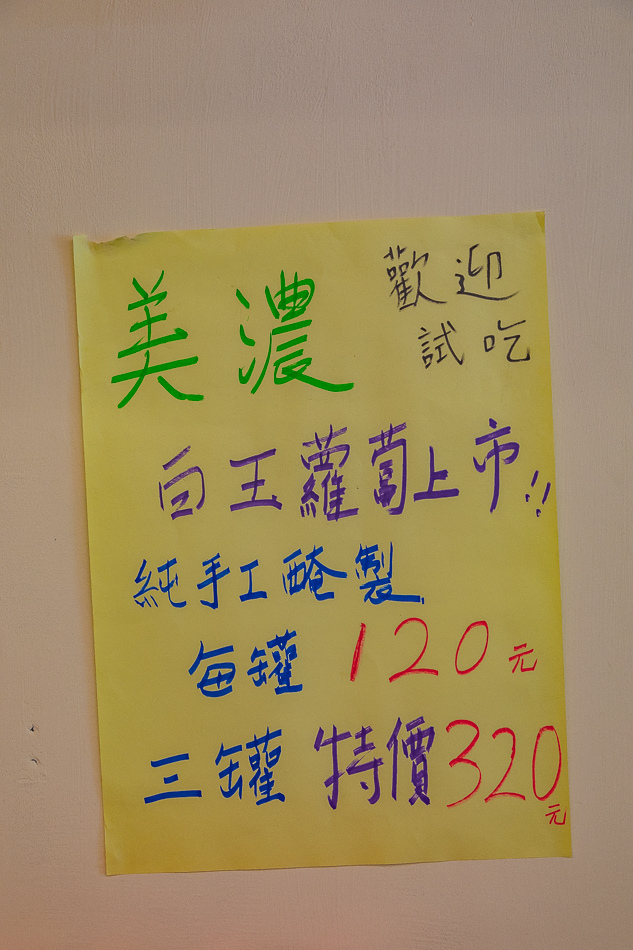 歡迎
試吃
美濃
白玉蘿蔔上市!!
純手工醃製
每罐 120元
三罐 特價320元